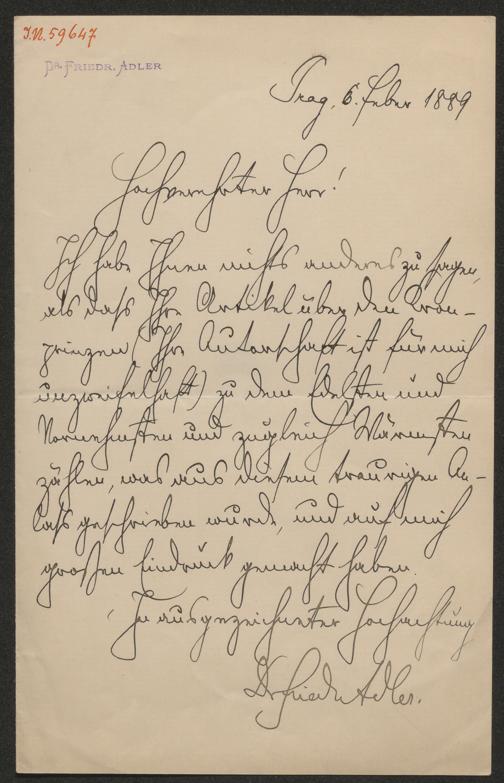 J.N. 59647
DR. FRIEDR. ADLER
Prag, 6. Feber 1889
Hochverehrter Herr!
Ich habe Ihnen nichts anderes zu sagen,
als daß Ihre Artikel über den Kron-
prinzen (Ihre Autorschaft ist für mich
unzweifelhaft) zu dem Edelsten und
Vornehmsten und zugleich Wärmsten
zählen, was aus diesem traurigen An-
laß geschrieben wurde, und auf mich
großen Eindruck gemacht haben.
In ausgezeichneter Hochachtung
Dr Friedr Adler.